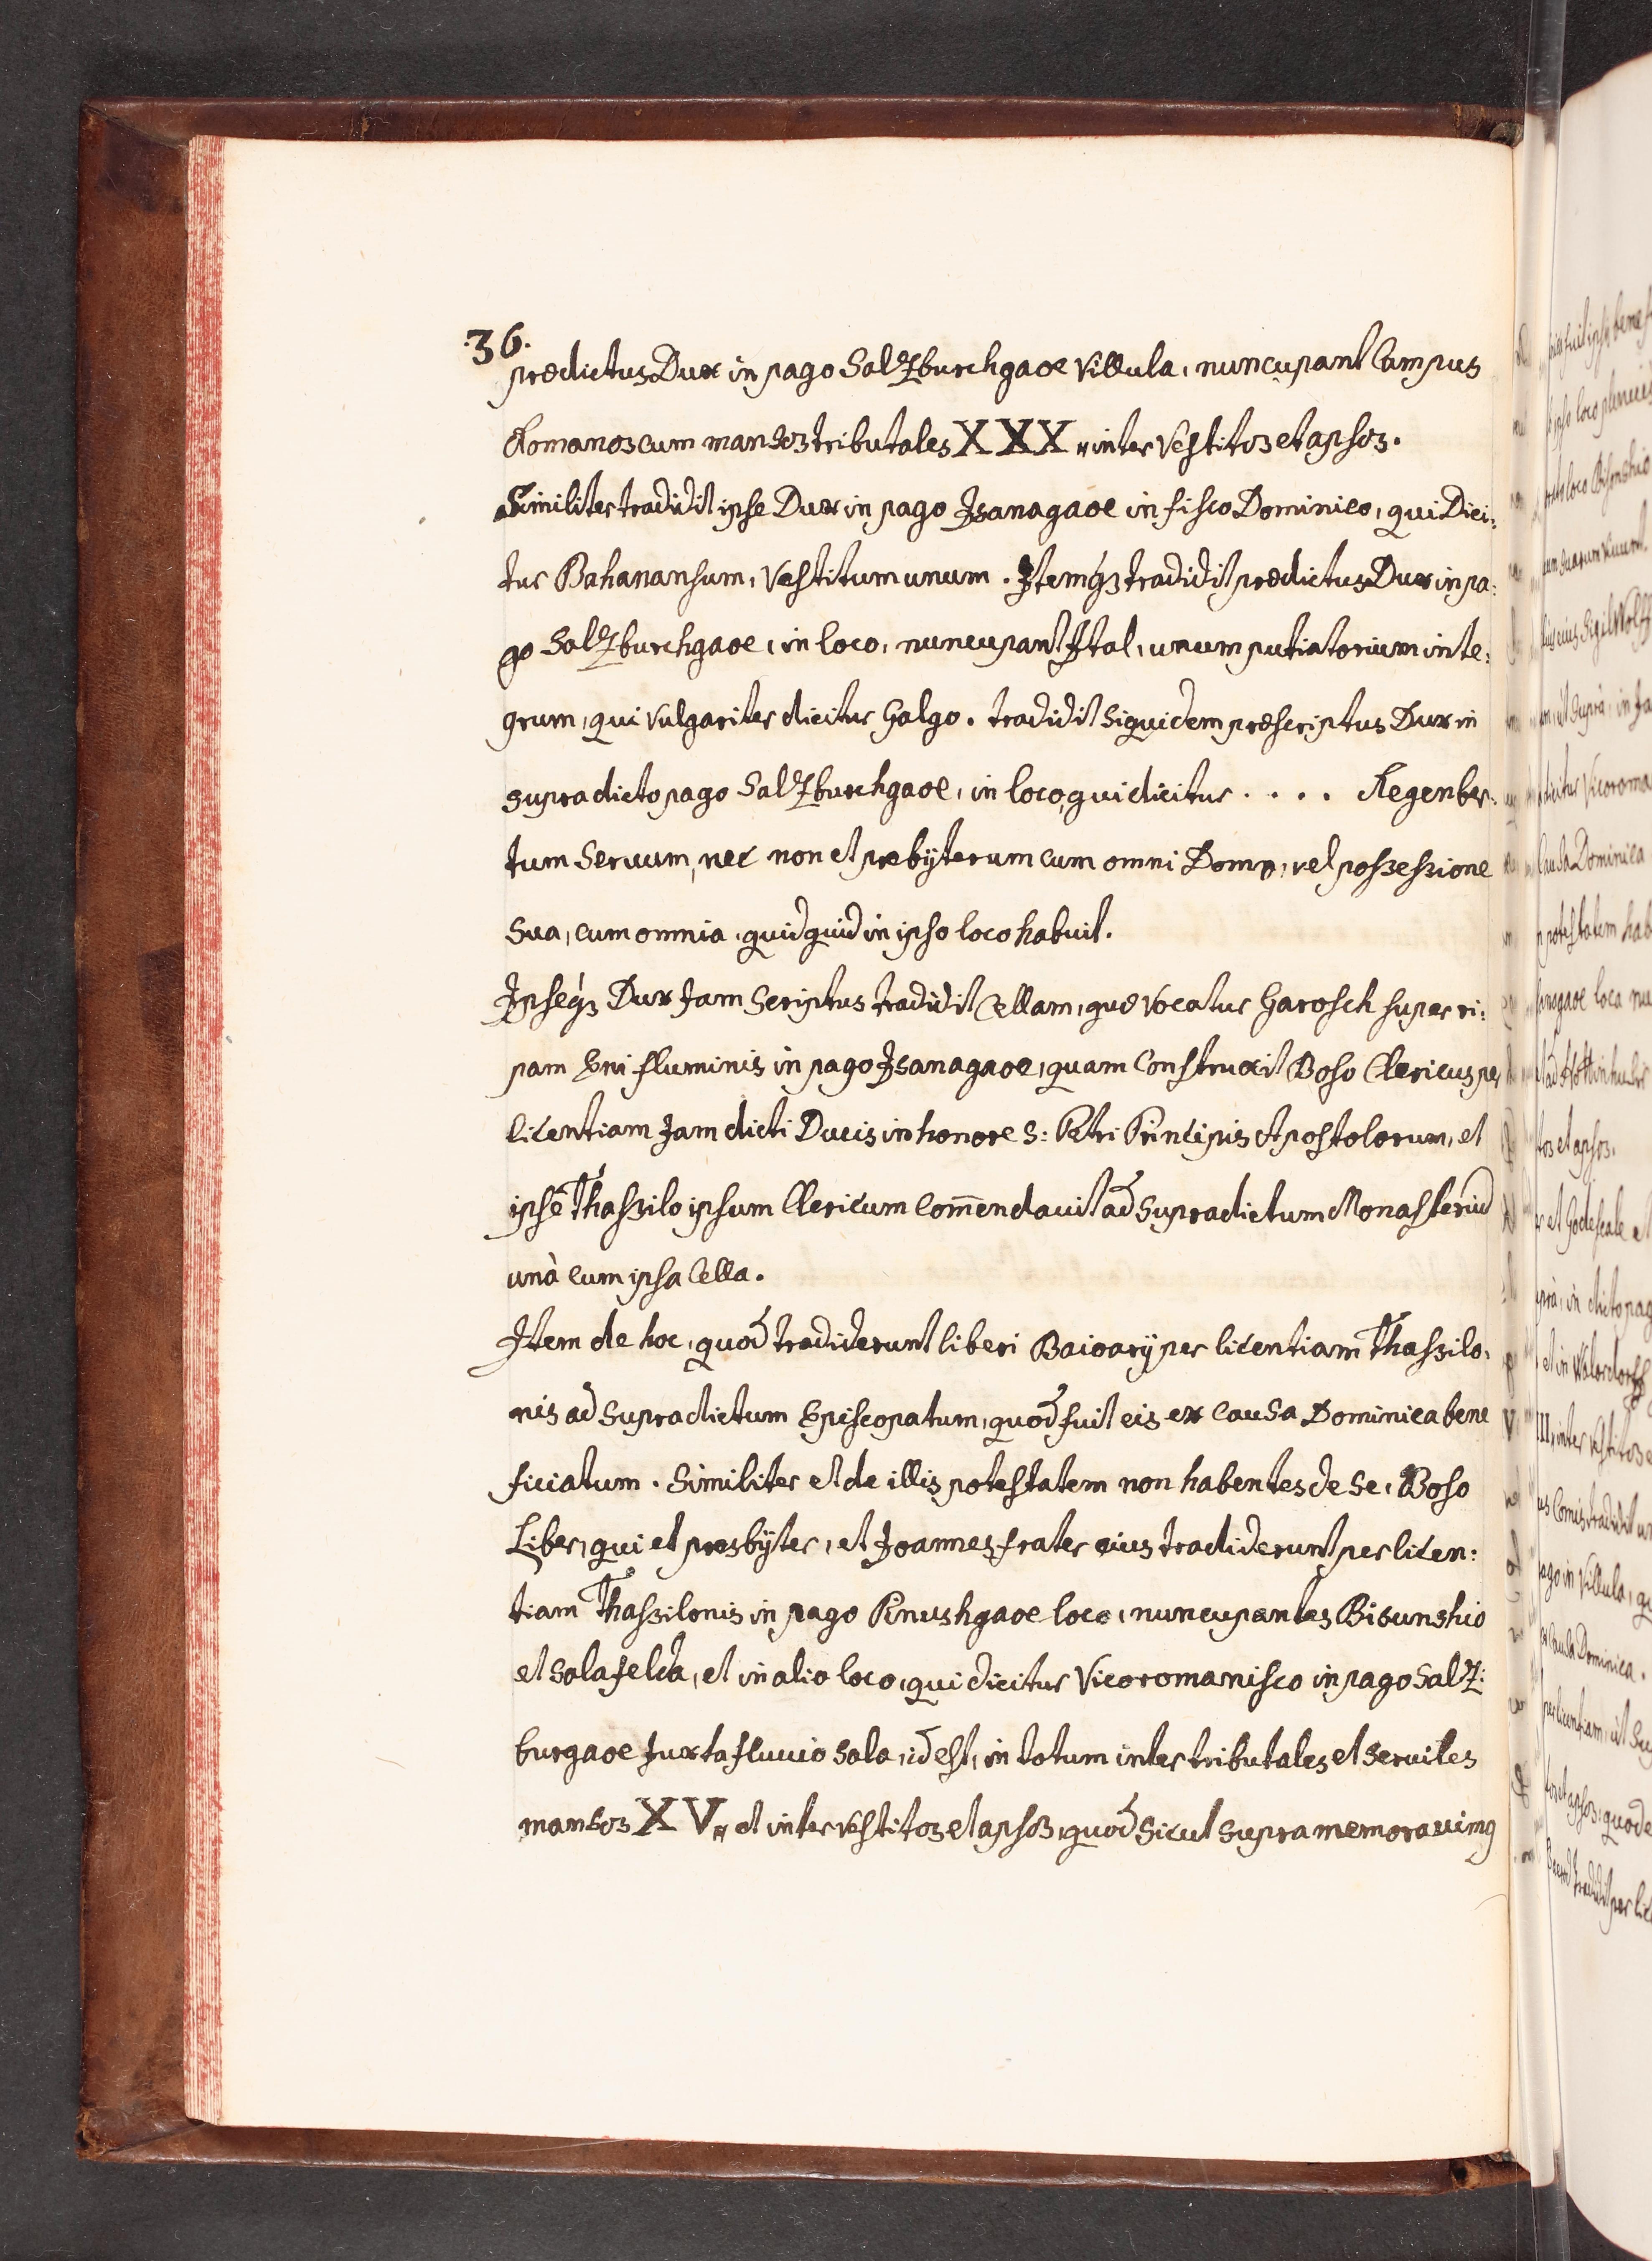 .36.
prædictus Dux in pago Saltzburchgaoe Villula, nuncupant Campus
Romanos cum mansos tributales XXX „ inter Vestitos et apsos.
Similiter tradidit ipse Dux in pago Jsanagaoe in fisco Dominico, qui Dici:
tur Bahanansum, Vestitum unum. Jtemq3 tradidit prædictus Dux in pa:
go Saltzburchgaoe, in loco, nuncupant Jtal, unum putiatorium inte:
grum, qui Vulgariter dicitur Galgo. tradidit siquidem præscriptus Dux in
supradicto pago Saltzburchgaoe, in loco, qui dicitur . . . . Regenber:
tum Seruum, nec non et prebÿterum cum omni Domo, vel possessione
sua, cum omnia, quidquid in ipso loco habuit.
Jpseq3 Dux Jam Scriptus tradidit Cellam, quæ Vocatur Garosch super ri:
pam Eni fluminis in pago Jsanagaoe, quam Construxit Boso Clericus per
licentiam Jam dicti Ducis in honore S: Petri Principis Apostolorum, et
ipse Thassilo ipsum Clericum Com̃endauit ad Supradictum Monasteriũ
unà cum ipsa Cella.
Jtem de hoc, quod tradiderunt liberi Baioarÿ per licentiam Thassilo,
nis ad Supradictum Episcopatum, quod fuit eis ex Causa Dominica bene
ficiatum. Similiter et de illis potestatem non habentes de Se, Boso
Liber, qui et presbÿter, et Joannes frater eius tradiderunt per licen:
tiam Thassilonis in pago Pinushgaoe loco, nuncupantes Bisunshio
et Salafelda, et in alio loco, qui dicitur Vicoromanisco in pago Saltz:
burgaoe Juxta fluuio Sala, id est, in totum inter tributales et Seruiles
mansos XV „ et inter vestitos et apsos, quod Sicut Supra memorauimq